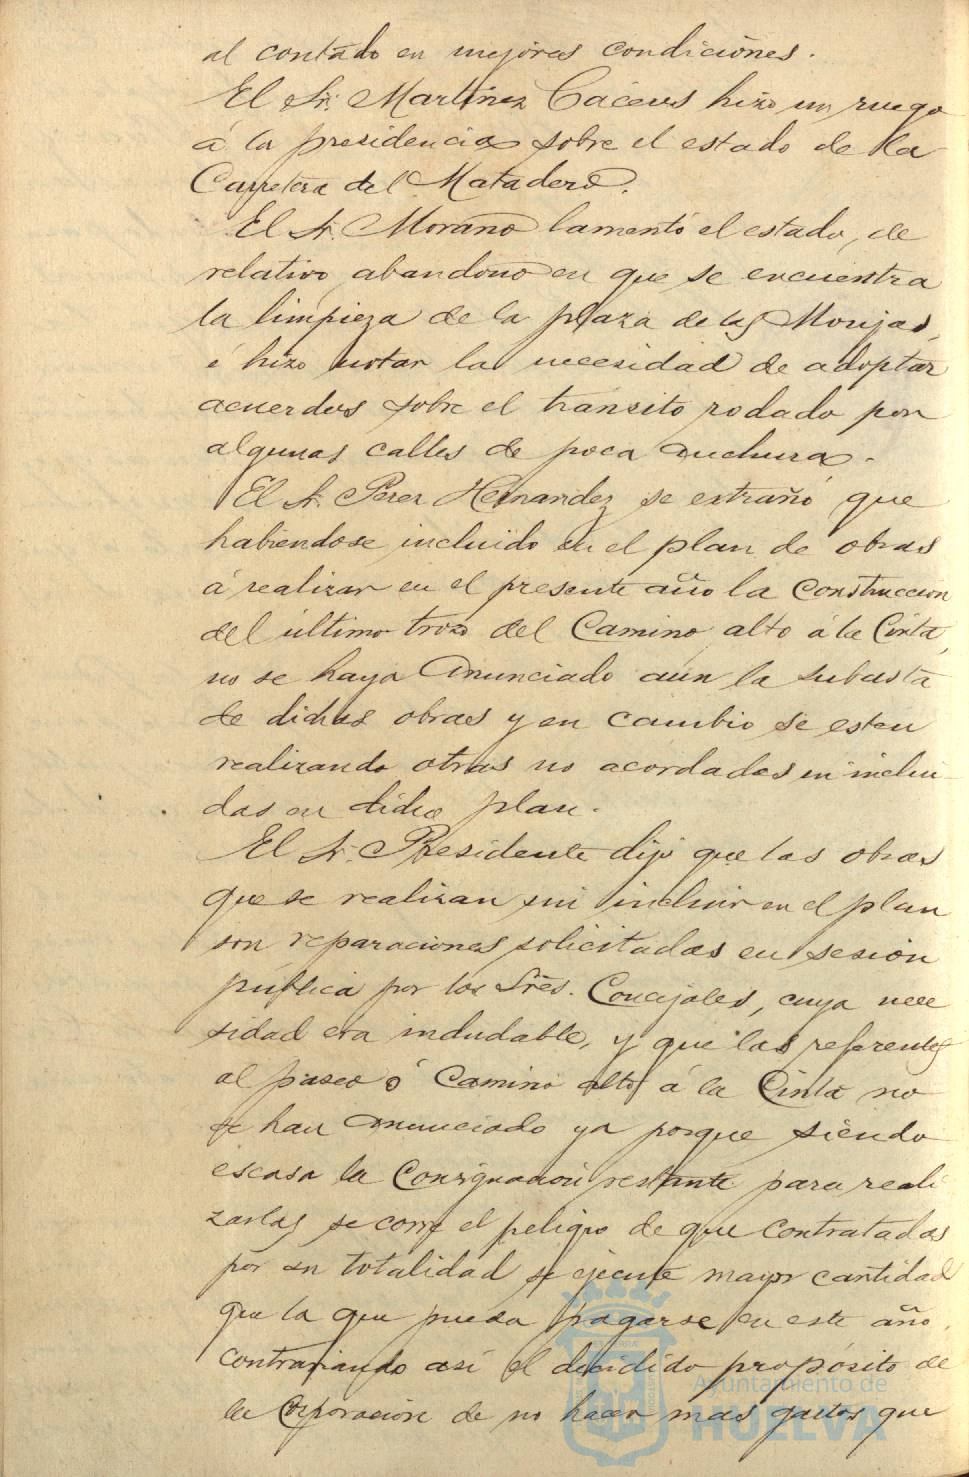 al contado en mejores condiciones.
El Sr. Martinez Cáceres hizo un ruego
á la presidencia sobre el estado de la
Carretera del Matadero.
El Sr. Morano lamentó el estado, de
relativo abandono en que se encuentra
la limpieza de la plaza de las Monjas,
é hizo notar la necesidad de adoptar
acuerdos sobre el tránsito rodado por
algunas calles de poca anchura.
El Sr. Perez Hernandez se estrañó que
habiendose incluido en el plan de obras
á realizar en el presente año la construccion
del último trozo del Camino alto á la Cinta,
no se haya anunciado aun la subasta
de dichas obras y en cambio se esten
realizando otras no acordadas ni inclui-
das en dicho plan.
El Sr. Presidente dijo que las obras
que se realizan sin incluir en el plan
son reparaciones solicitadas en sesion
pública por los Sres. Concejales, cuya nece
sidad era indudable, y que las referentes
al paseo ó Camino alto á la Cinta no
se han anunciado ya porque siendo
escasa la Consignacion restante para reali
zarlas se corre el peligro de que contratadas
por su totalidad se ejecute mayor cantidad
que la que pueda pagarse en este año,
contrariando asi el decidido propósito de
la Corporacion de no hacer mas gastos que
Ayuntamiento de
HUELVA